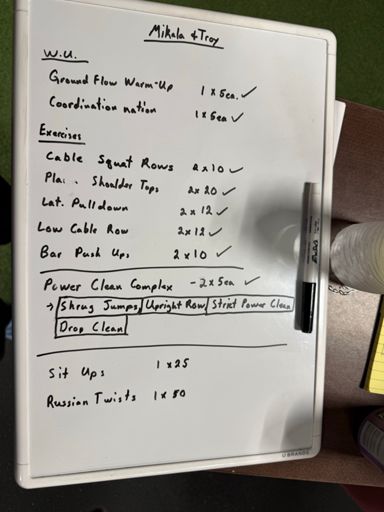 Mikala & Troy
W.U.
Ground Flow Warm-Up 1 x 5ea. ✓
Coordination nation 1 x 5ea ✓
Exercises
Cable Squat Rows 2 x 10 ✓
Shoulder Taps 2 x 20 ✓
Lat. Pulldown 2 x 12 ✓
Low Cable Row 2 x 12 ✓
Bar Push Ups 2 x 10 ✓
Power Clean Complex - 2 x 5ea ✓
→ Shrug Jumps Upright Row Strict Power Clean
Drop Clean
Sit Ups 1 x 25
Russian Twists 1 x 50
U BRANDS